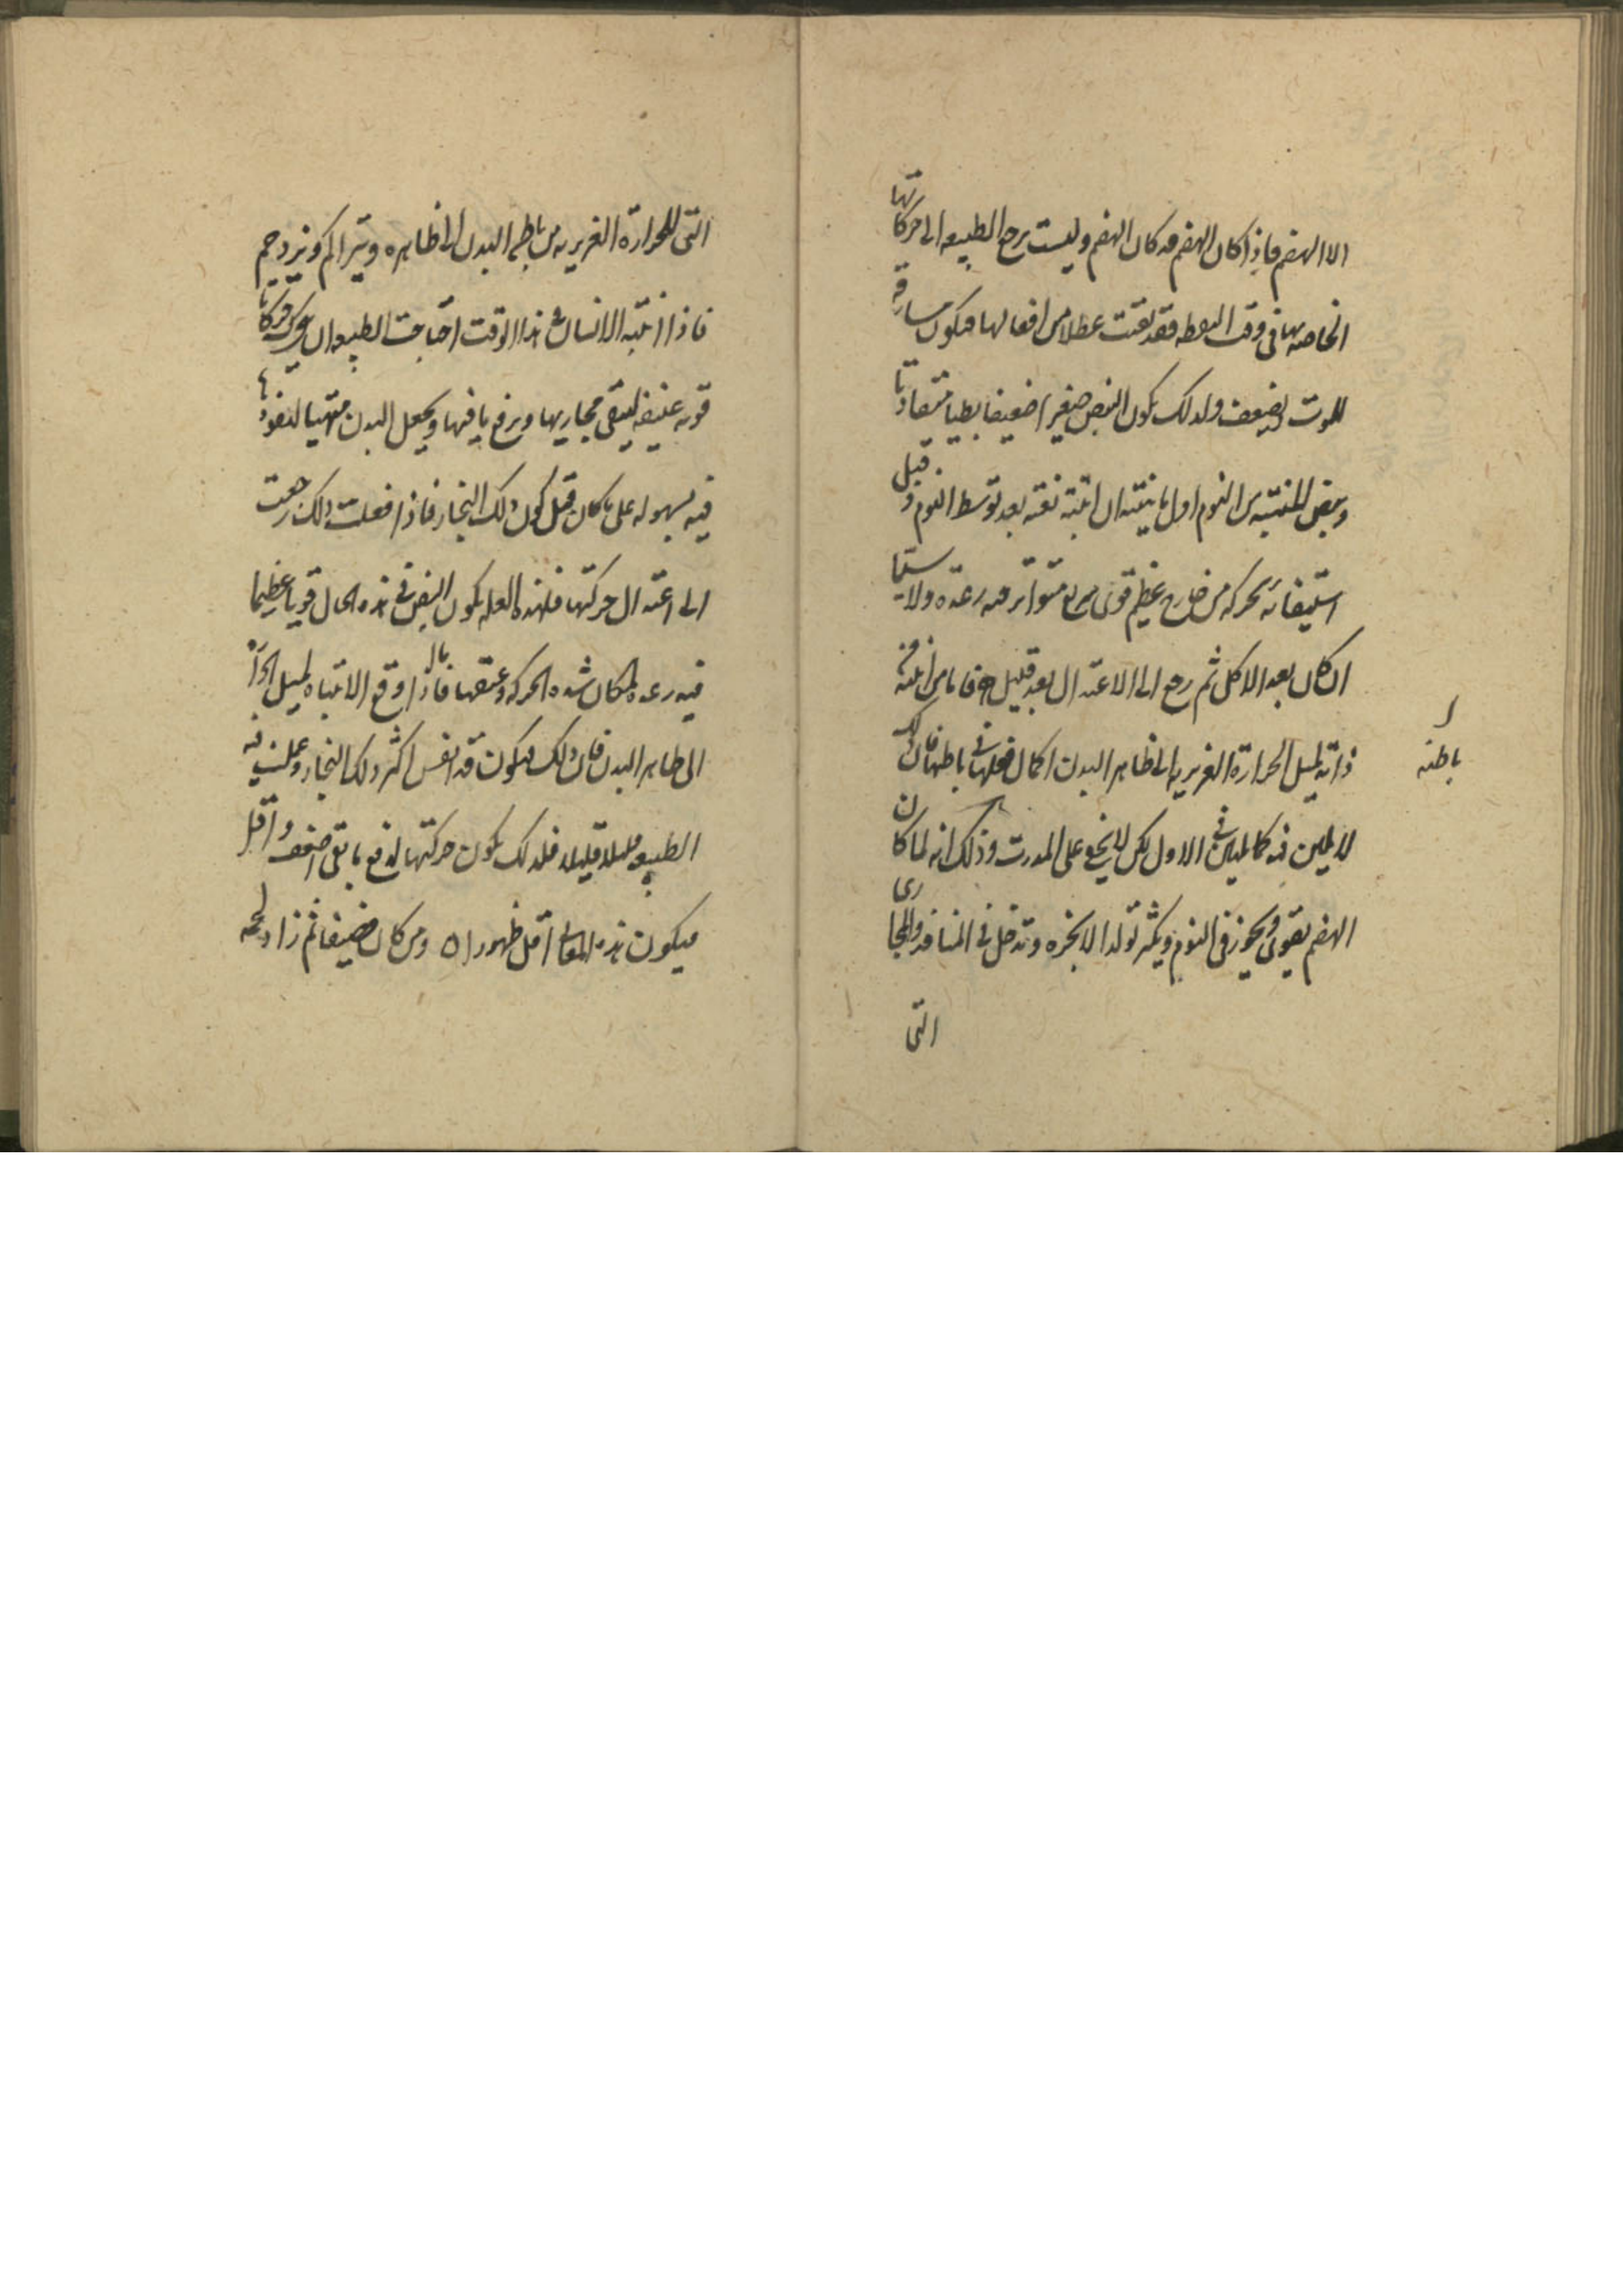 الا الهضم فاذا كان الهضم قد كان الهضم وليست يرجع الطبيعه الى حركاتها
الخاصه بها فى وقت اليقظه فقد بقيت عطلا من افعالها فيكون مسارقه
للموت فيضعف ولذلك يكون النبض صغيرا ضعيفا بطيا متفاوتا
ونبض المنتبه من النوم اول ما ينتبه ان انتبه بغته بعد توسط النوم وقبل
استيفائه بحركه من خارج عظيم قوى سريع متواتر فيه رعده ولا سيما
ان كان بعد الاكل ثم رجع الى الاعتدال بعد قليل فاما من انتبه من
ذاته لميل الحرارة الغريزيه الى ظاهر البدن اكمال فعلها فى باطنها فان ذلك
باطنه
لا يلين فيه كما يلين فى الاول لكن لا يخفى على المدرب وذلك انه لما كان
الهضم يقوى ويجوز فى النوم ويكثر تولد الابخره وتدخل فى المنافذ والمجارى
التى
التى للحرارة الغريزيه من باطن البدن الى ظاهره ويتراكم ويزدحم
فاذا انتبه الانسان فى هذا الوقت احتاجت الطبيعه ان يتحرك حركات
قويه عنيفه لينقى مجاريها ويرفع ما فيها ويجعل البدن متهييا لنفوذها
فيه بسهوله على ما كان قبل كون ذلك البخار فاذا فعلت ذلك رجعت
الى اعتدال حركتها فلهذه العله يكون النبض فى هذه الحال قويا عظيما
فيه رعده لمكان شده الحركه وعنفها فاما اذا وقع الانتباه لميل الحرارة
الى ظاهر البدن فان ذلك فيكون قد انفس اكثر ذلك البخار وعملت فيه
الطبيعه قليلا قليلا فلذلك يكون حركتها لدفع ما بقى اضعف واقل
فيكون هذه المعانى اقل ظهورا ومن كان ضعيفا ثم زاد لحمه